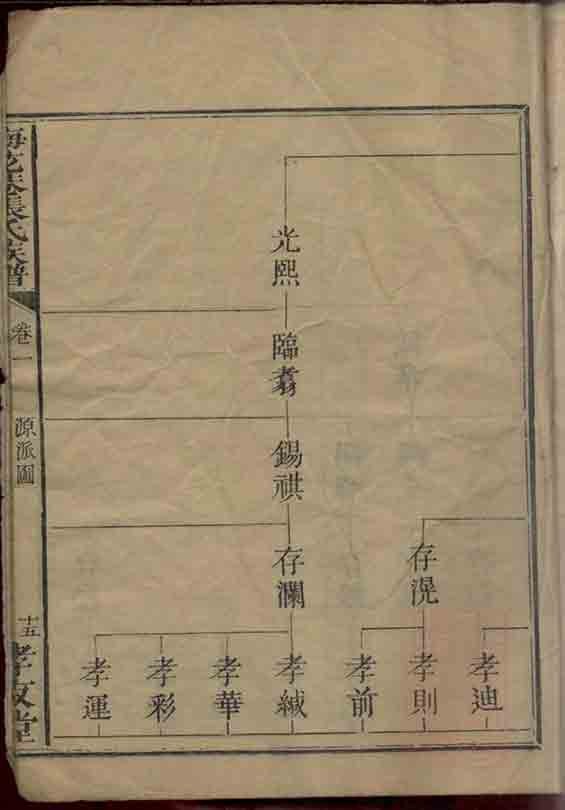 光熙
臨翥
錫祺
存滉
存瀾
孝迪
孝則
孝前
孝緘
孝華
孝彩
孝運
張氏族譜
卷一
源派圖
十五
孝友堂